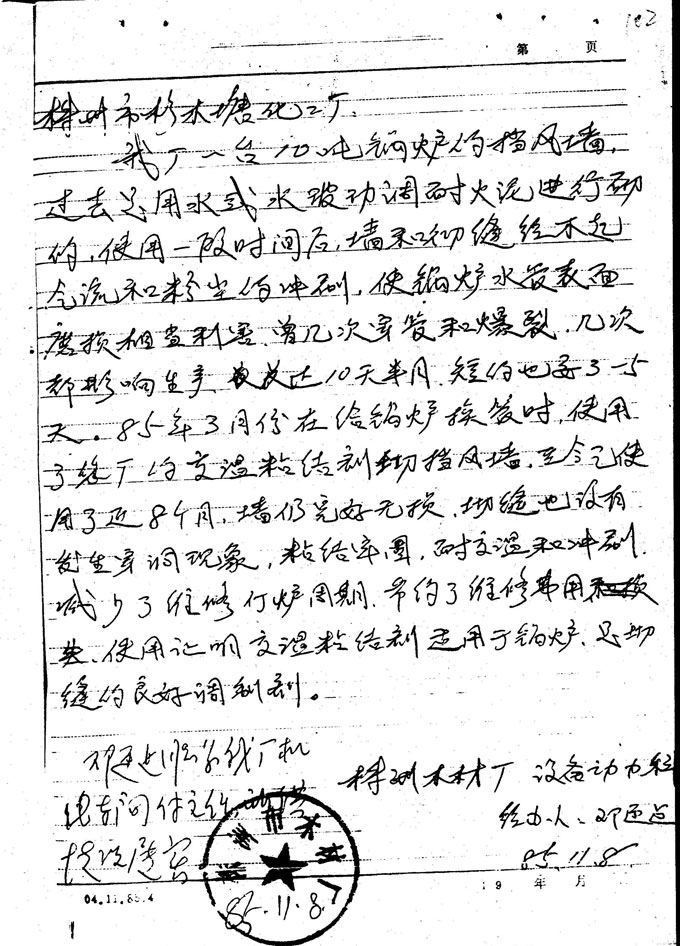 102
第 页
株州市杉木塘化工厂.
我厂一台10吨锅炉的挡风墙,
过去是用水式水玻功调耐火泥进行砌
的,使用一段时间后,墙和砌缝经不起
气流和粉尘的冲刷,使锅炉水管表面
磨损相当利害,曾几次穿管和爆裂,几次
都影响生产,达10天半月,短的也要3-5
天。85年3月份在给锅炉换管时,使用
了您厂的交温粘结剂砌挡风墙,至今已使
用了近8个月,墙仍完好无损,砌缝也没有
发生穿洞现象,粘结牢固,耐交温和冲刷.
减少了维修停炉周期.节约了维修费用
使用证明交温粘结剂适用于锅炉、是砌
缝的良好调制剂。
邓 我厂机
电车间付主任
情况
株洲木材厂 设备动力科
经办人、邓
85.11.8.
株洲市木材厂
85.11.8.
04.11.85.4
19 年 月